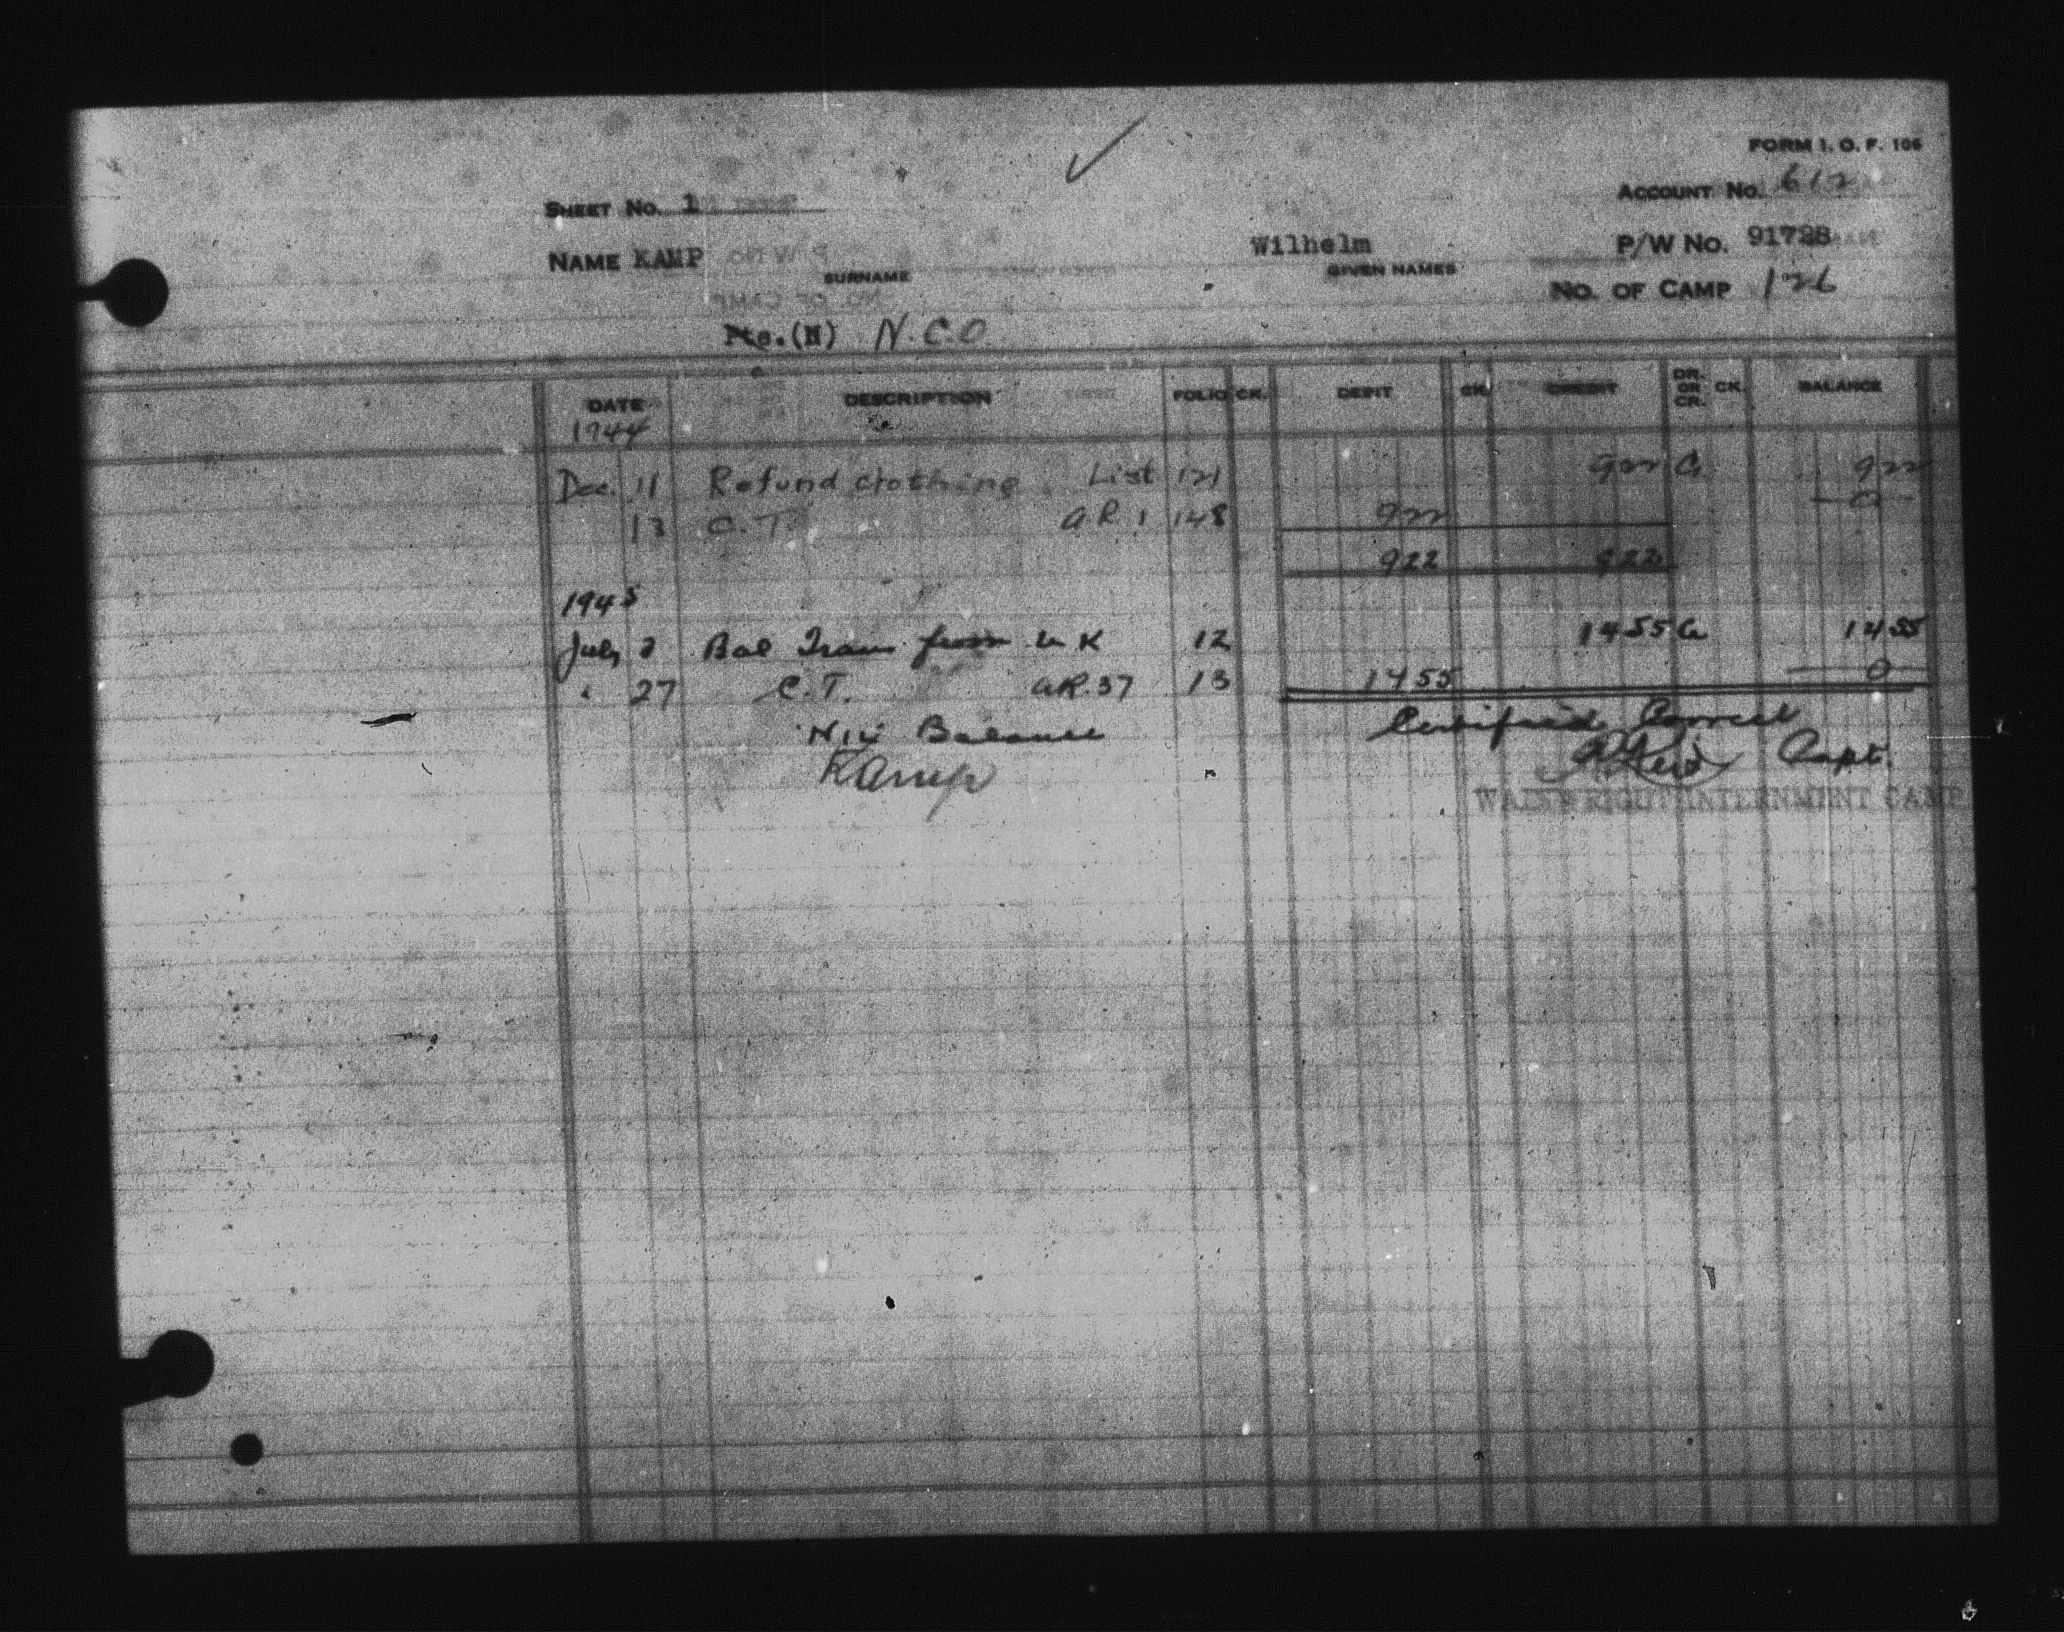 FORM I. O. F. 106
ACCOUNT No. 612
SHEET No. 1
NAME KAMP Wilhelm P/W No. 91728
SURNAME GIVEN NAMES
No. OF CAMP 126
Pte.(N) N.C.O
DATE DESCRIPTION FOLIO CK. DEBIT CK. CREDIT DR. OR CR. CK. BALANCE
1944
Dec. 11 Refund clothing List 121 922 Cr 922
13 C.T. A.R. 1 148 922 0
922 922
1945
July 3 Bal Trans from U K 12 1455 Cr 1455
" 27 C.T. A.R. 37 13 1455 0
Nil Balance Certified Correct
Kamp Capt.
WAINWRIGHT INTERNMENT CAMP